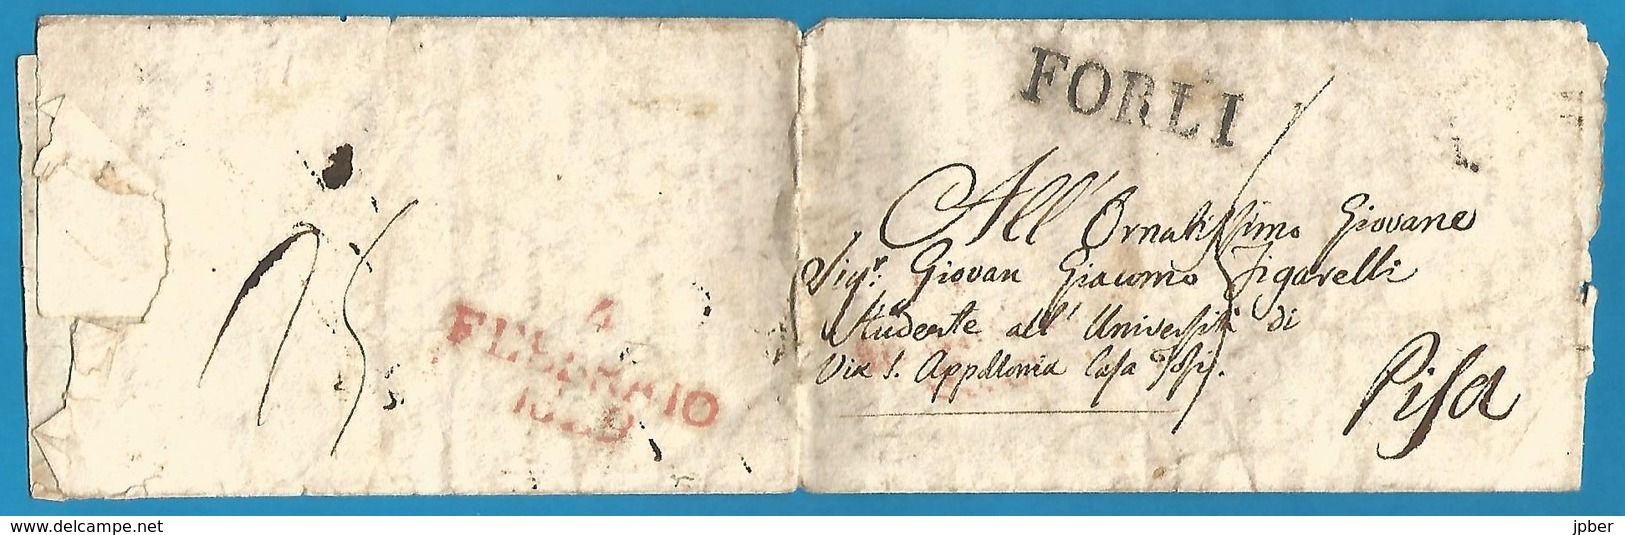 FORLI
All' Ornatissimo Giovane
Sigr. Giovan Giacomo Figarelli
Studente all' Università di
Via S. Appollonia Casa
Pisa
4
FEBBRAIO
www.delcampe.net
jpber